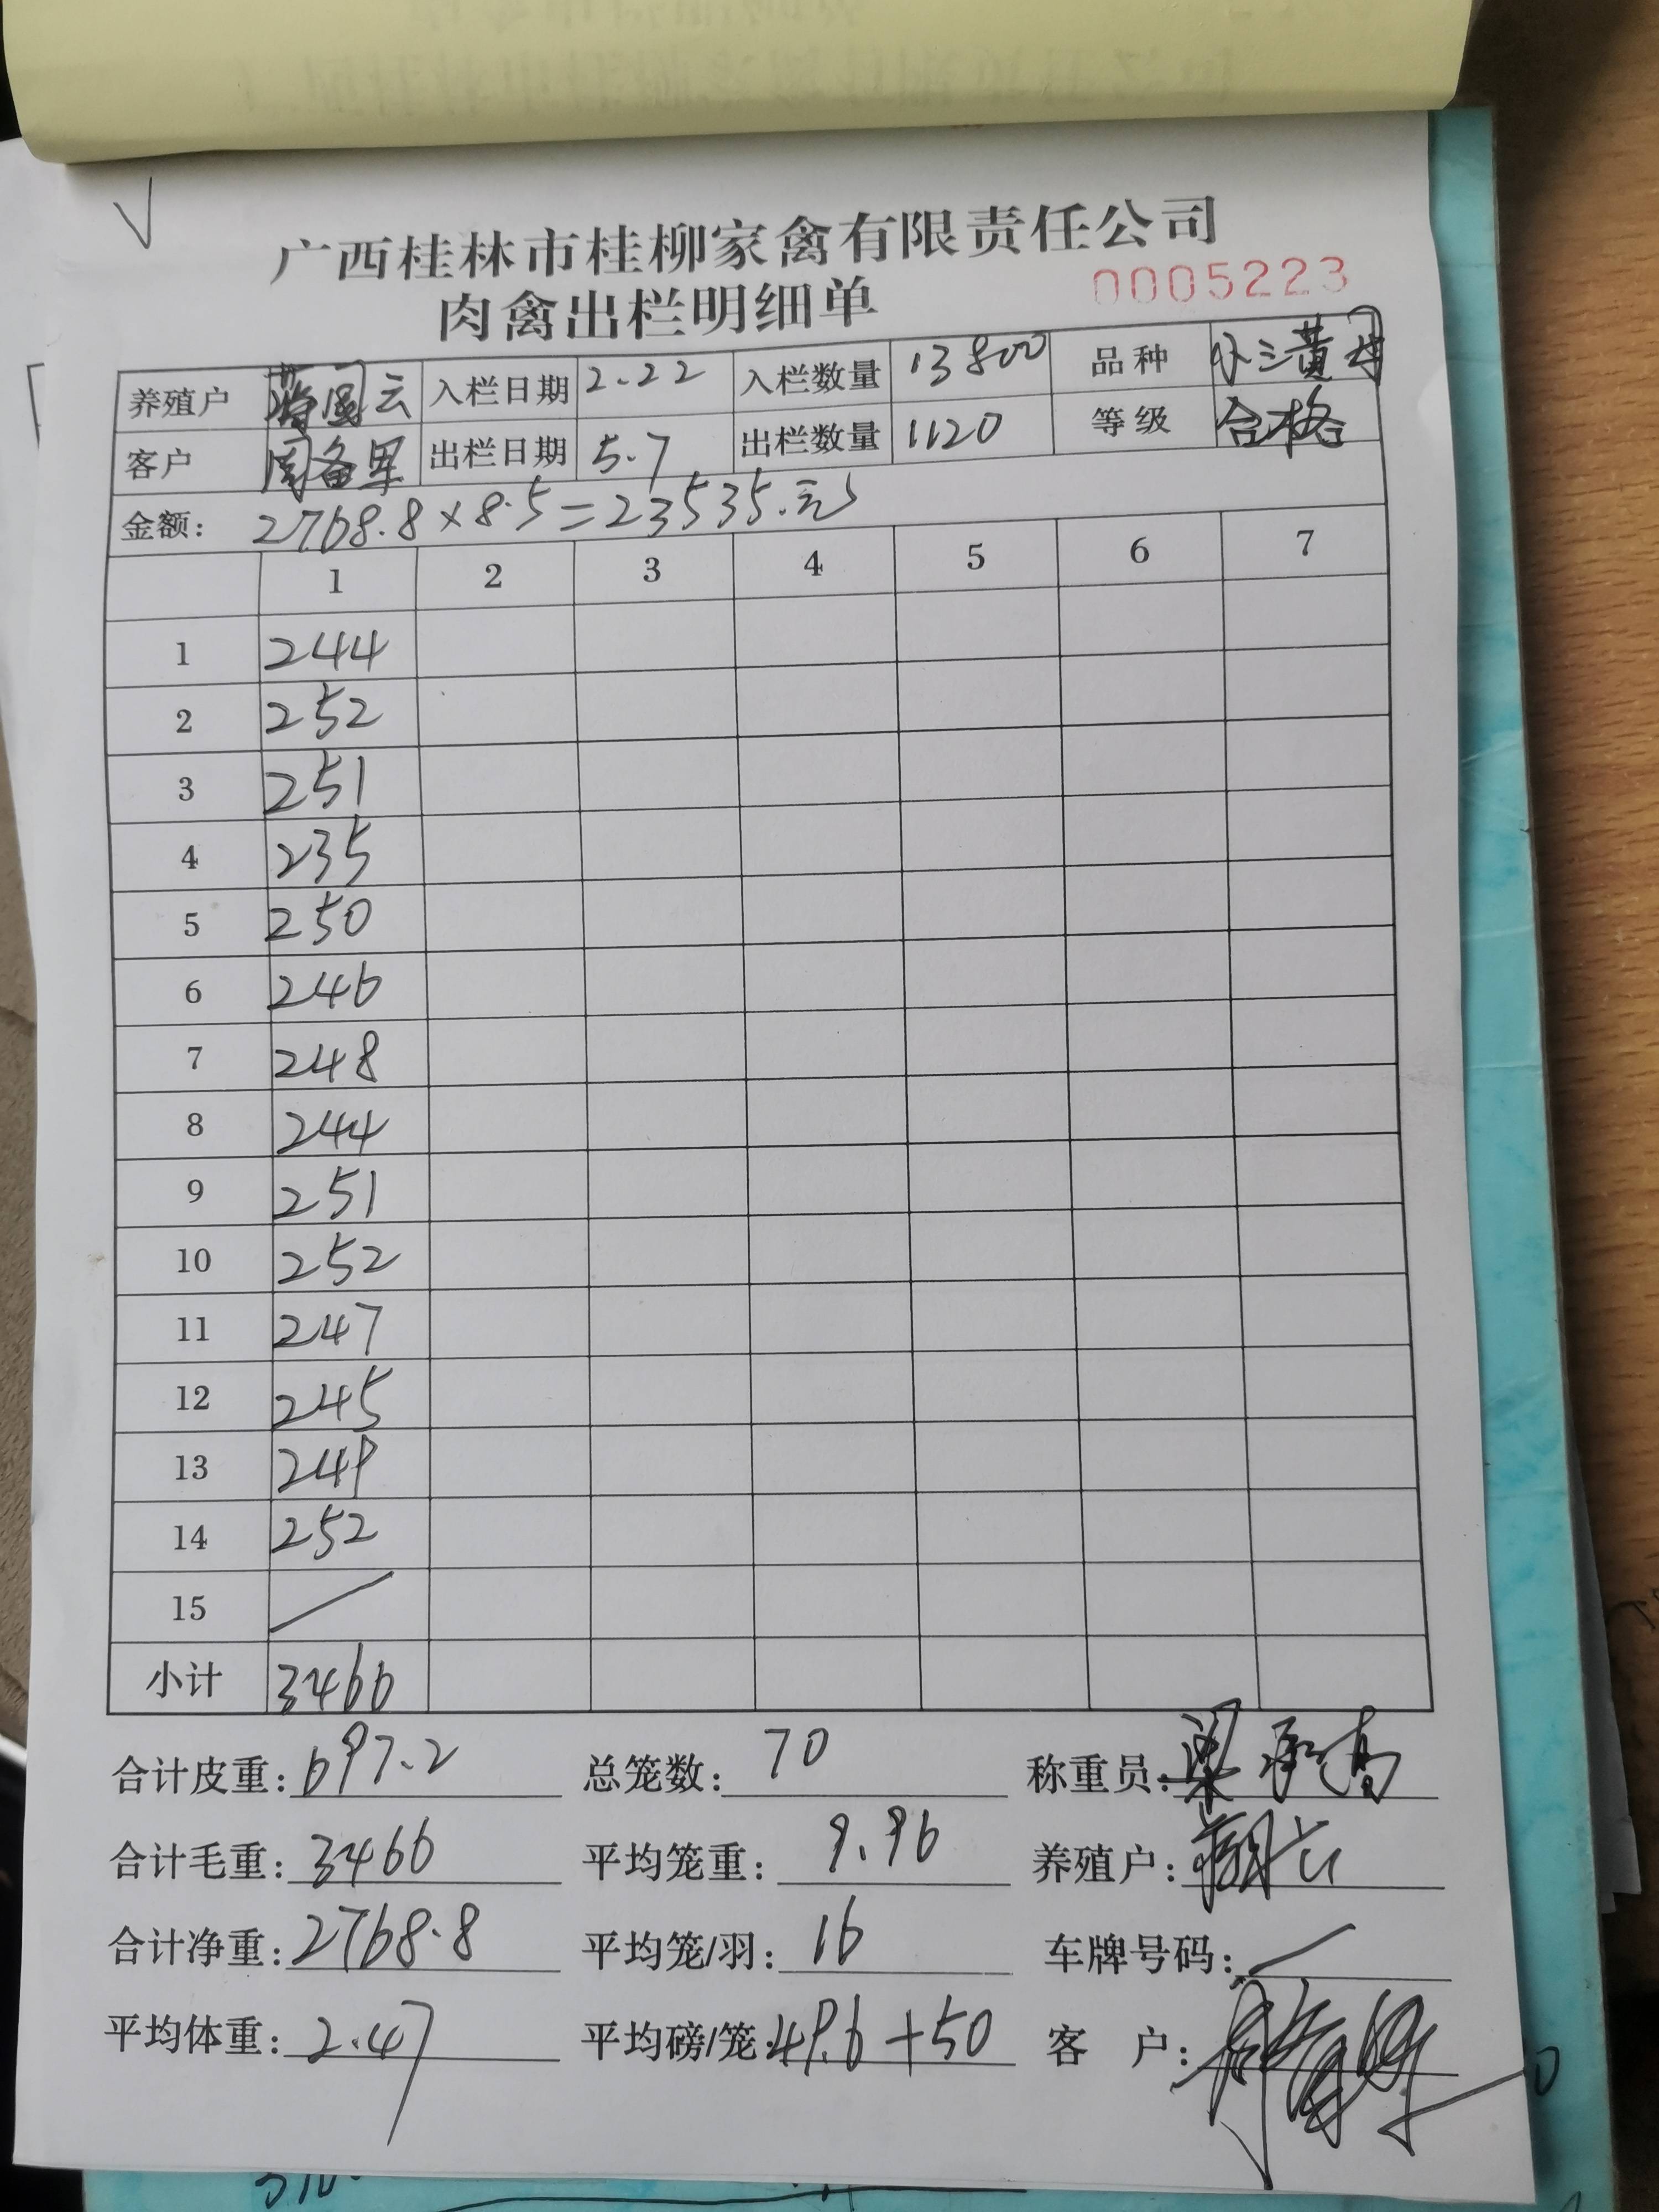 广西桂林市桂柳家禽有限责任公司
肉禽出栏明细单 0005223
养殖户 蒋国云 入栏日期 2.22 入栏数量 13800 品种 小三黄母
客户 周备军 出栏日期 5.7 出栏数量 1120 等级 合格
金额: 2768.8×8.5=23535.元
1 2 3 4 5 6 7
1 244
2 252
3 251
4 235
5 250
6 246
7 248
8 244
9 251
10 252
11 247
12 245
13 249
14 252
15
小计 3466
合计皮重: 697.2 总笼数: 70 称重员: 梁承高
合计毛重: 3466 平均笼重: 9.96 养殖户:
合计净重: 2768.8 平均笼/羽: 16 车牌号码:
平均体重: 2.47 平均磅/笼: 49.6+50 客 户: